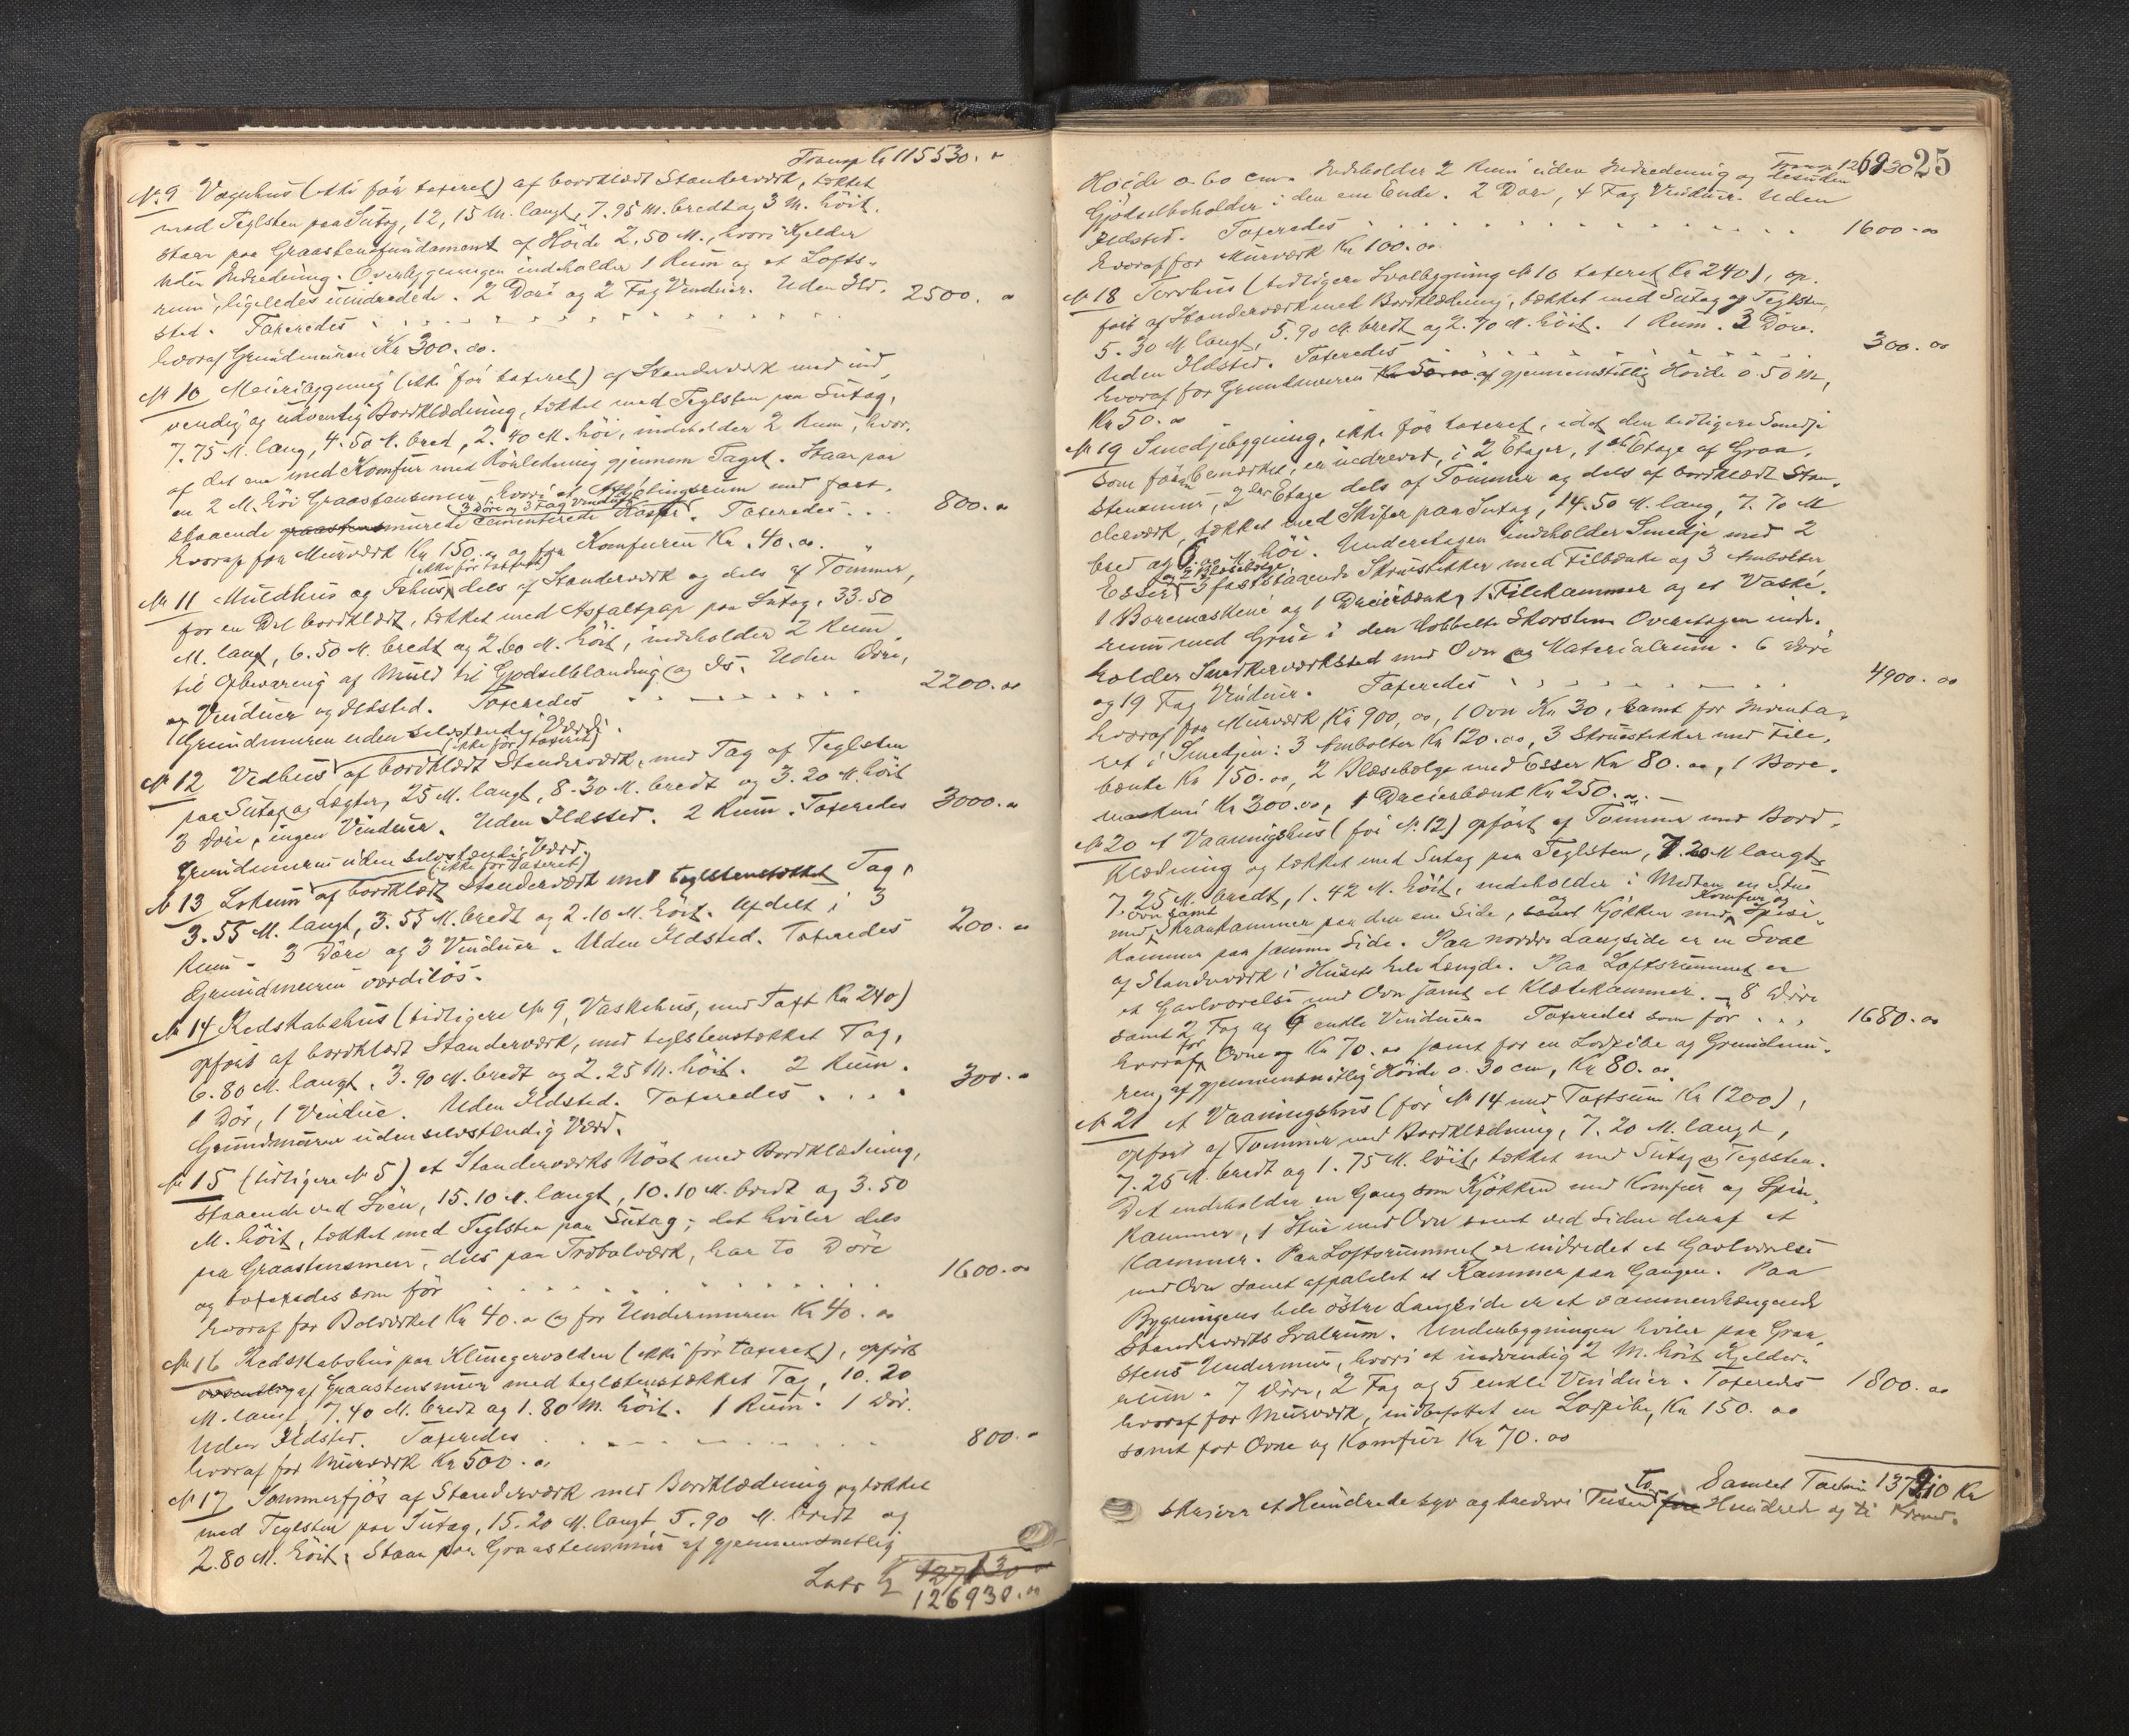 Transp Kr 115530. "
№ 9 Vognhus (ikke før taxeret) af bordklædt Standerværk, tækket
med Teglsten paa Sutag, 12,15 M. langt, 7.95 M. bredt og 3 M. høit.
Staar paa Graastensfundament af Høide 2,50 M., hvori Kjelder
uden Indredning. Overbygningen indeholder 1 Rum og et Lofts-
rum, ligeledes uindredede. 2 Døre og 2 Fag Vinduer. Uden Ild-
sted. Taxeredes . . . . . . 2500. "
hvoraf Grundmuren Kr 300.00.
№ 10 Meieribygning (ikke før taxeret) af Standerværk med ind-
vendig og udvendig Bordklædning, tækket med Teglsten paa Sutag,
7.75 M. lang, 4.50 M. bred, 2.40 M. høi, indeholder 2 Rum, hvor-
af det ene med Komfur med Rørledning gjennem Taget. Staar paa
en 2 M. høi Graastensmur, hvori et Afkjølingsrum med fast-
3 Døre og 3 Fag Vinduer
staaende graastens murede cementerede Kasser. Taxeredes . . . 800. "
hvoraf for Murværk Kr 150. " og for Komfuren Kr. 40.00.
(ikke før taxeret)
№ 11 Muldhus og Ishus, dels af Standerværk og dels af Tømmer,
for en Del bordklædt, tækket med Asfaltpap paa Sutag, 33.50
M. langt, 6.50 M. bredt og 2.60 M. høit, indeholder 2 Rum
til Opbevaring af Muld til Gjødselblanding og Is. Uden Døre,
og Vinduer og Ildsted. Taxeredes . . . . . 2200.00
Grundmuren uden selvstændig Værdi.
(ikke før taxeret)
№ 12 Vedhus af bordklædt Standerværk, med Tag af Teglsten
paa Sutag og Lægter, 25 M. langt, 8.30 M. bredt og 3.20 M. høit
3 Døre, ingen Vinduer. Uden Ildsted. 2 Rum. Taxeredes 3000. "
Grundmuren uden selvstændig Værd.
(ikke før taxeret)
№ 13 Lokum af bordklædt Standerværk med teglstenstækket Tag,
3.55 M. langt, 3.55 M. bredt og 2.10 M. høit. Afdelt i 3
Rum. 3 Døre og 3 Vinduer. Uden Ildsted. Taxeredes 200. "
Grundmuren værdiløs.
№ 14 Redskabshus (tidligere № 9, Vaskehus, med Taxt Kr 240)
opført af bordklædt Standerværk, med teglstenstækket Tag,
6.80 M. langt, 3.90 M. bredt og 2.25 M. høit. 2 Rum.
1 Dør, 1 Vindue. Uden Ildsted. Taxeredes . . . . 300. "
Grundmuren uden selvstændig Værd.
№ 15 (tidligere № 5) et Standerværks Nøst med Bordklædning,
staaende ved Søen, 15.10 M. langt, 10.10 M. bredt og 3.50
M. høit, tækket med Teglsten paa Sutag; det hviler dels
paa Graastensmur, dels paa Træbolværk, har to Døre
og taxeredes som før . . . . . . 1600.00
hvoraf for Bolværket Kr 40. " og for Undermuren Kr 40. 00
№ 16 Redskabshus paa Klingervolden (ikke før taxeret), opført
af Graastensmur med teglstenstækket Tag, 10.20
M. langt, 7.40 M. bredt og 1.80 M. høit. 1 Rum. 1 Dør.
Uden Ildsted. Taxeredes . . . . . . 800. "
hvoraf for Murværk Kr 500. "
№ 17 Sommerfjøs af Standerværk med Bordklædning og tækket
med Teglsten paa Sutag, 15.20 M. langt, 5.90 M. bredt og
2.80 M. høit. Staar paa Graastensmur af gjennemsnitlig
Lats Kr 127130 "
126930. 00
25
Transp 126930
Høide 0.60 cm. Indeholder 2 Rum uden Indredning og desuden
Gjødselbeholder i den ene Ende. 2 Døre, 4 Fag Vinduer. Uden
Ildsted. Taxeredes . . . . . . 1600.00
hvoraf for Murværk Kr 100.00
№ 18 Torvhus (tidligere Svalbygning № 10 taxeret Kr 240), op-
ført af Standerværk med Bordklædning, tækket med Sutag og Teglsten,
5.30 M. langt, 5.90 M. bredt og 2.70 M. høit. 1 Rum. 3 Døre.
Uden Ildsted. Taxeredes . . . . . . 300.00
hvoraf for Grundmuren Kr 50.00 af gjennemsnitlig Høide 0.50 M,
Kr 50. "
№ 19 Smedjebygning, ikke før taxeret, idet den tidligere Smedje
som før bemærket, er nedrevet, i 2 Etager, 1ste Etage af Graa-
stensmur, 2den Etage dels af Tømmer og dels af bordklædt Stan-
derværk, tækket med Skifer paa Sutag, 14.50 M. lang, 7.70 M
bred og 6.00 M. høi. Underetagen indeholder Smedje med 2
og 2 Blæsebælge
Esser, 3 faststaaende Skruestikker med Filbænke og 3 Ambolter,
1 Boremaskine og 1 Dreierbænk, 1 Filekammer og et Vaske-
rum med Grue i den dobbelte Skorsten. Overetagen inde-
holder Snedkerværksted med Ovn og Materialrum. 6 Døre
og 19 Fag Vinduer. Taxeredes . . . . . 4900.00
hvoraf for Murværk Kr 900,00, 1 Ovn Kr 30, samt for Inventa-
ret i Smedjen: 3 Ambolter Kr 120.00, 3 Skruestikker med File-
bænke Kr 150.00, 2 Blæsebælge med Esser Kr 80.00, 1 Bore-
maskine Kr 300.00, 1 Dreierbænk Kr 250. "
№ 20 et Vaaningshus (før № 12) opført af Tømmer med Bord-
klædning og tækket med Sutag paa Teglsten, 7.20 M langt,
7.25 M. bredt, 1.42 M. høit, indeholder i Midten en Stue
Ovn samt og Komfur og
med Skraakammer paa den ene Side, samt Kjøkken med Spise-
kammer paa samme Side. Paa nordre Langside er en Sval
af Standerværk i Husets hele Længde. Paa Loftsrummet er
et Gavlværelse med Ovn samt et Klædekammer. – 8 Døre
samt 2 Fag og 6 enkle Vinduer. Taxeredes som før . . . 1680.00
for
hvoraf Ovne og Kr 70.00 samt for en Lodpibe og Grundmu-
ren, af gjennemsnitlig Høide 0.30 cm, Kr 80.00.
№ 21 et Vaaningshus (før № 14 med Taxtsum Kr 1200),
opført af Tømmer med Bordklædning, 7.20 M. langt,
7.25 M. bredt og 1.75 M. høit, tækket med Sutag og Teglsten.
Det indeholder en Gang som Kjøkken med Komfur og Spise-
kammer, 1 Stue med Ovn samt ved Siden deraf et
Kammer. Paa Loftsrummet er indredet et Gavlværelse
med Ovn samt afpalelet et Kammer paa Gangen. Paa
Bygningens hele østre Langside er et sammenhængende
Standerværks Svalrum. Underbygningen hviler paa Graa-
stens Undermur, hvori et indvendig 2 M. høit Kjelder-
rum. 7 Døre, 2 Fag og 5 enkle Vinduer. Taxeredes 1800.00
hvoraf for Murværk, indbefattet en Lodpibe, Kr 150.00
samt for Ovne og Komfur Kr 70.00
Samlet Taxtsum 137210 Kr
to
skriver et Hundrede syv og tredive Tusend fire Hundrede og ti Kroner.